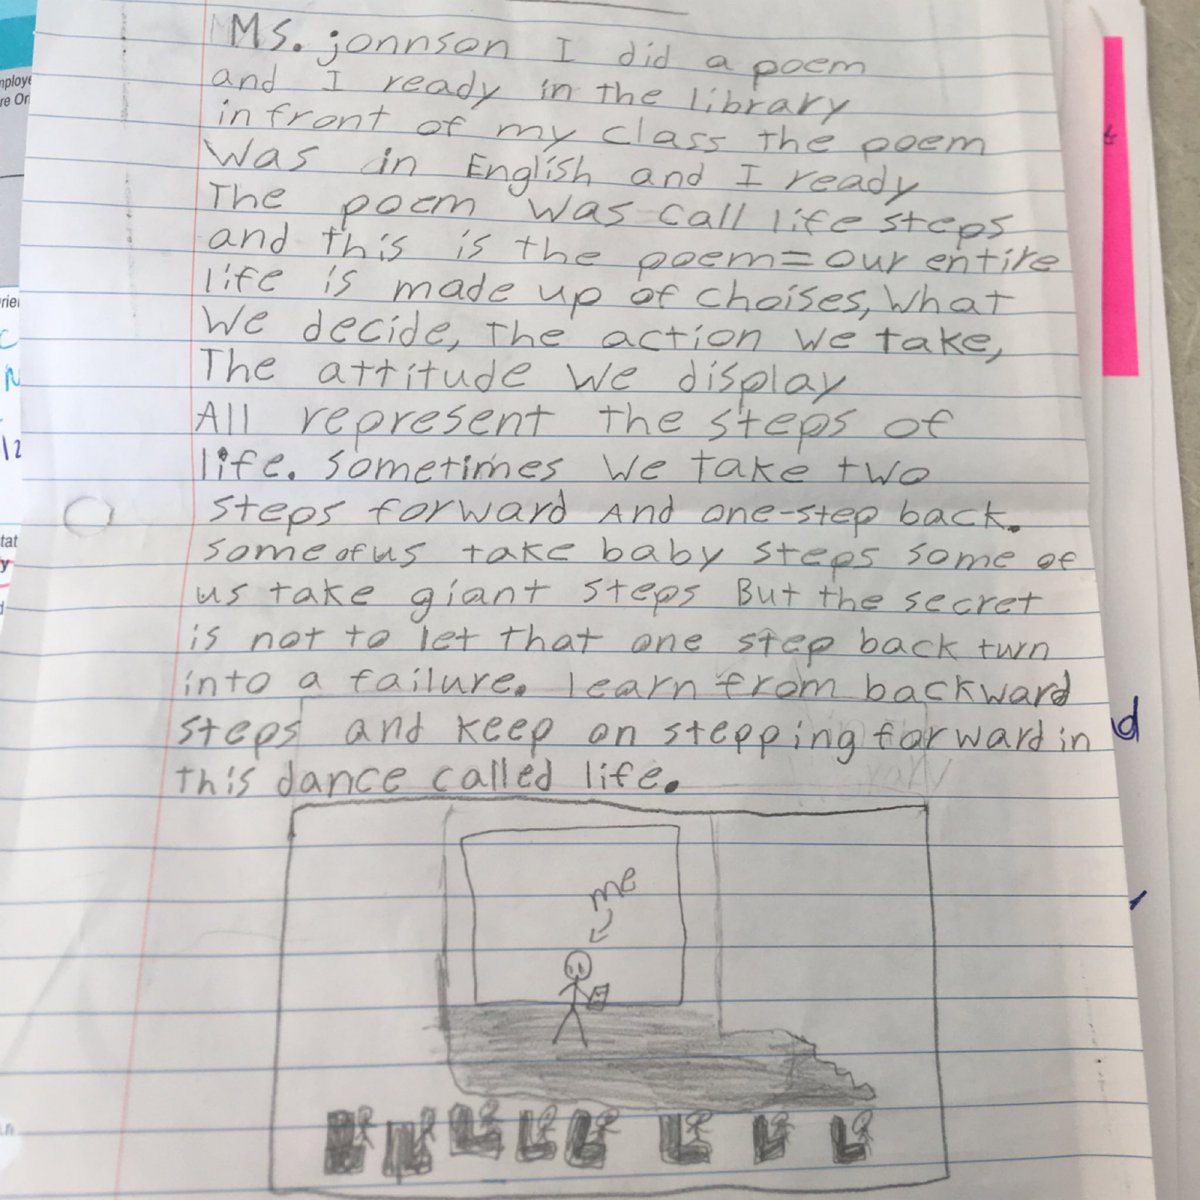 Ms. jonnson I did a poem
and I ready in the library
infront of my class the poem
Was in English and I ready
The poem was call life steps
and this is the poem=our entire
life is made up of choises, What
We decide, The action we take,
The attitude we display
All represent the steps of
life. sometimes we take two
steps forward And one-step back.
some of us take baby steps some of
us take giant steps But the secret
is not to let that one step back turn
into a failure. learn from backward
steps and keep on stepping forward in
this dance called life.
me